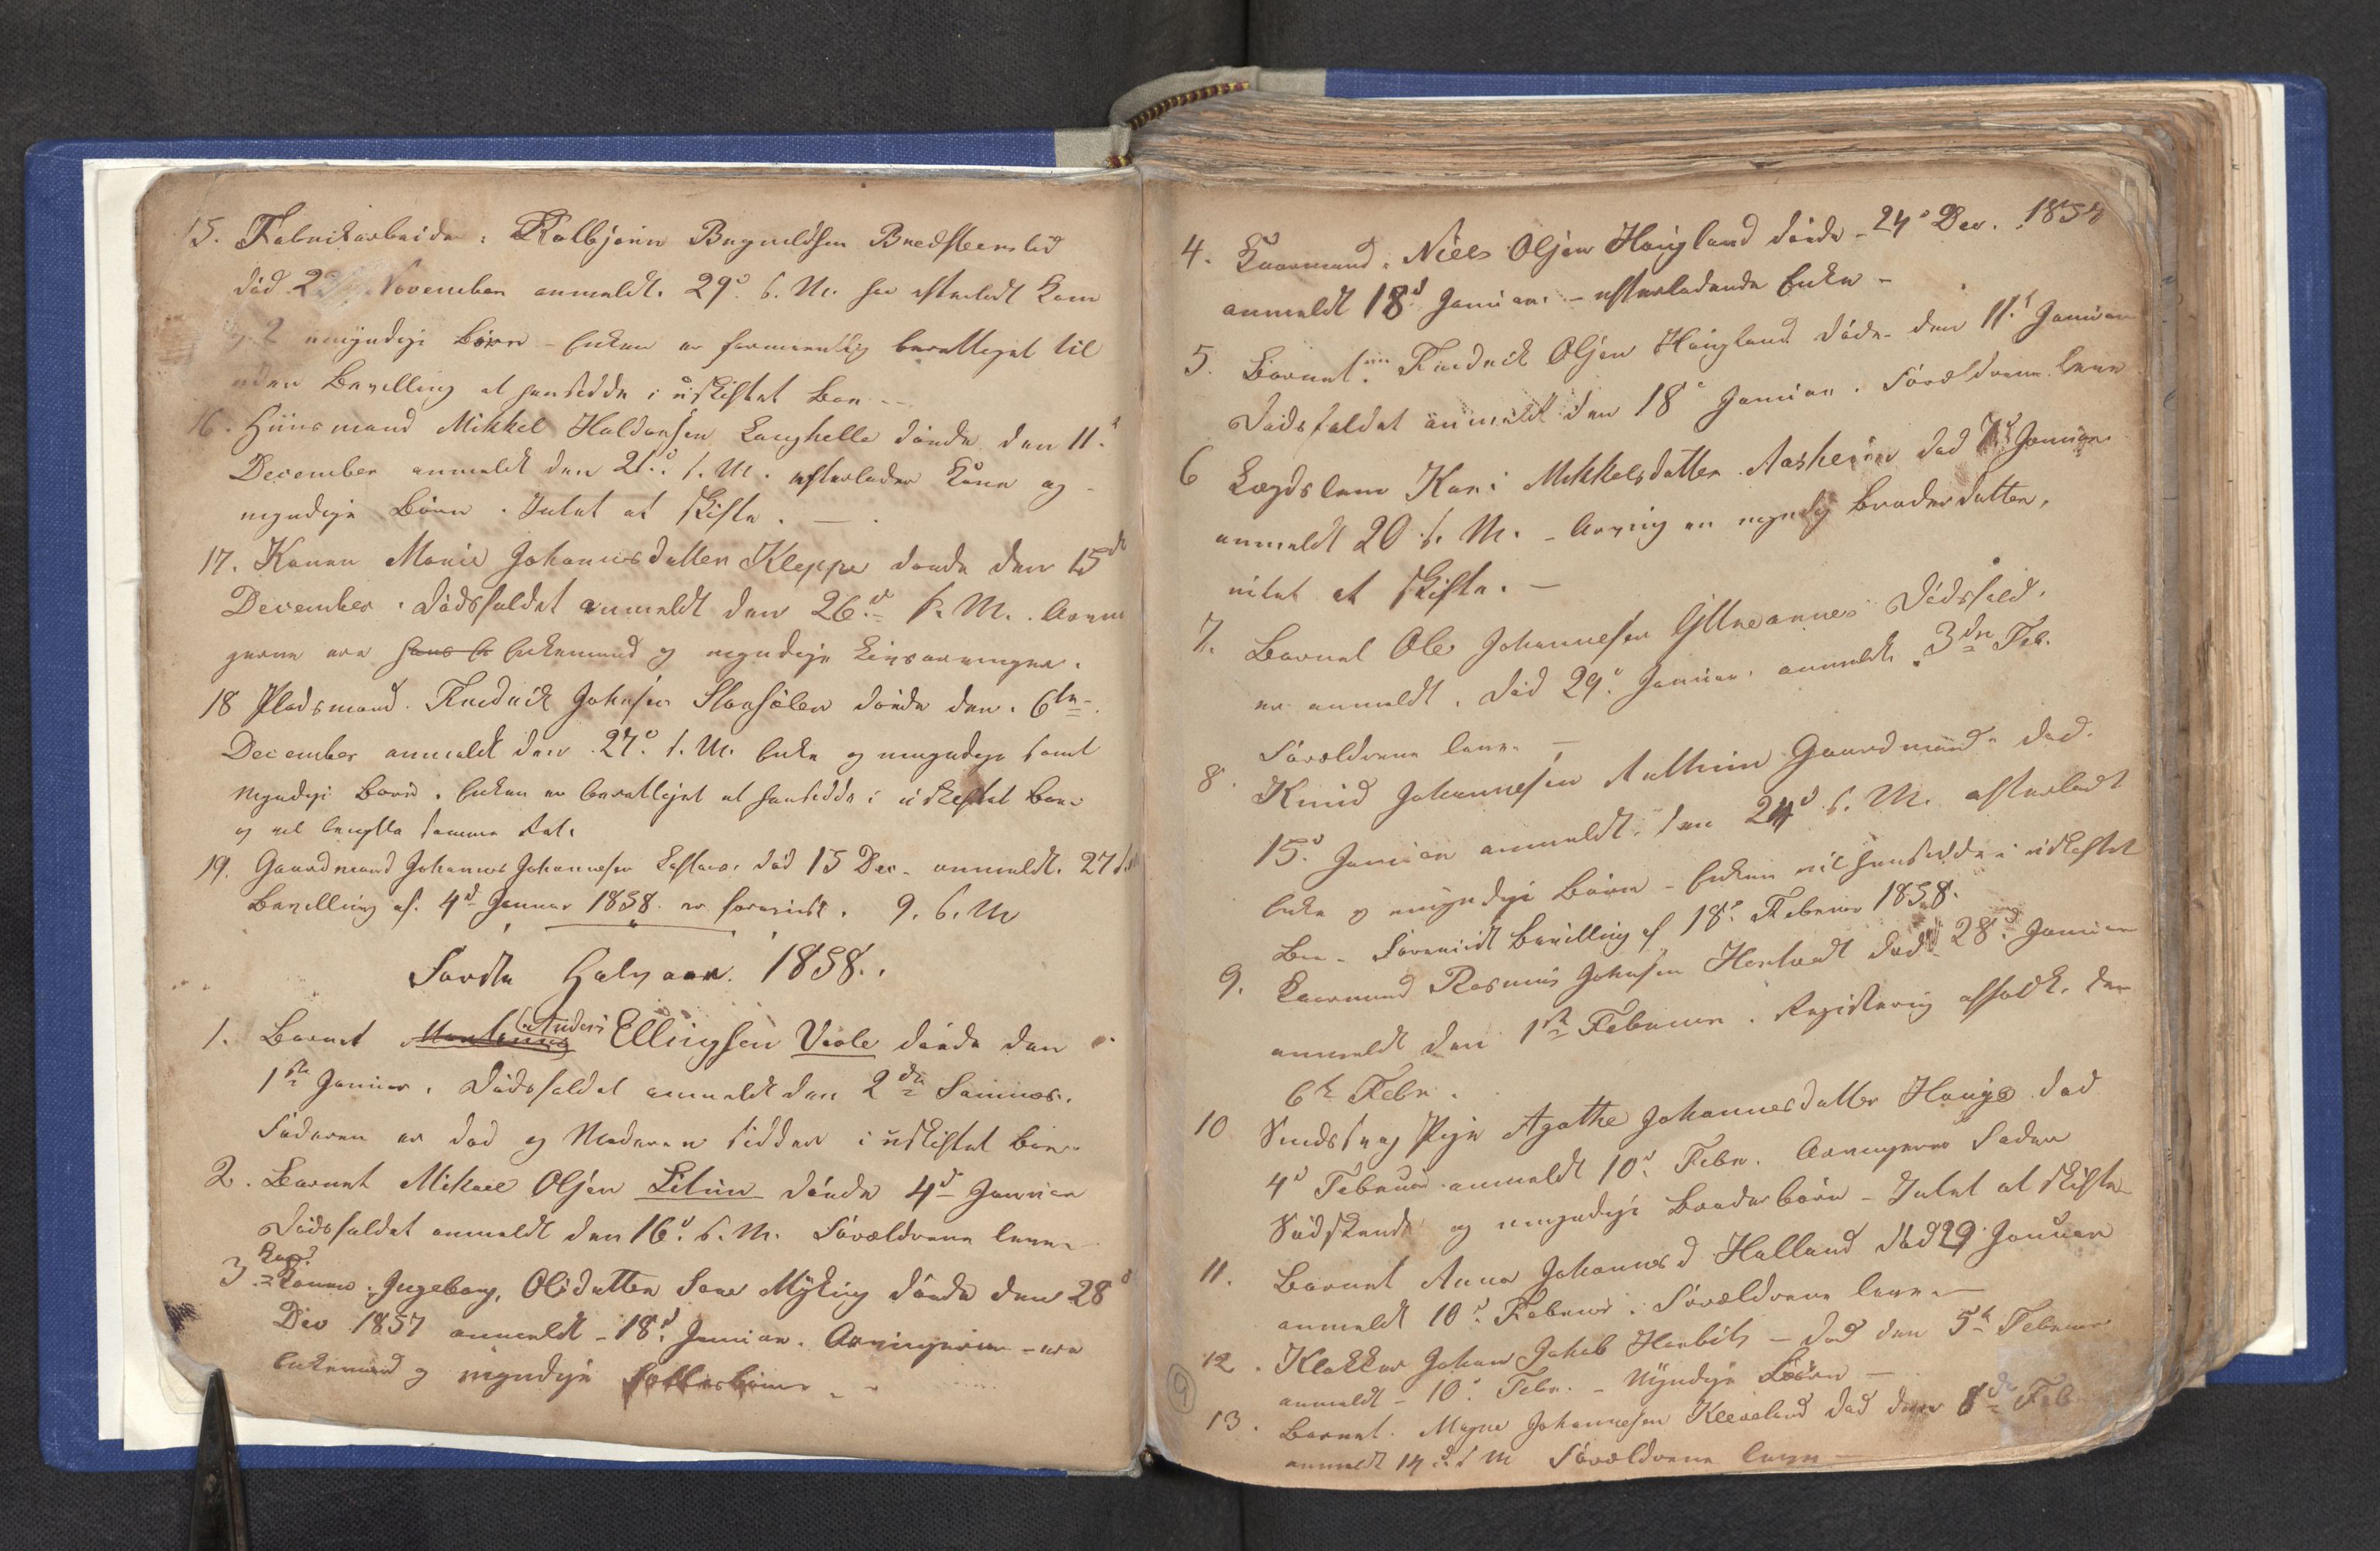 15. Fabrikarbeider: Kolbjørn Brynildsen Bredsteenslid
død November anmeldt. 29d s. M. har efterladt Kone
og 2 umyndige Børn - Enken er formeentlig berettiget til
uden Bevilling at hensidde i uskiftet Boe -
16. Huusmand Mikkel Haldorsen Langhelle døede den 11.
December anmeldt den 21d s. M. efterlader Kone og
myndige Børn. Intet at skifte. -
17. Konen Marie Johannesdatter Kleppe døede den 15de
December. Dødsfaldet anmeldt den 26d s. M. Arvin
gerne ere Enkemand og myndige Livsarvinger.
18 Pladsmand. Fredrik Johnsen døede den. 6te
December anmeldt den 27d s. M. Enke og umyndige samt
myndige Børn. Enken er berettiget at hensidde i uskiftet Boe
og vil benytte samme Ret.
19. Gaardmand Johannes Johannesen død 15 Dec. anmeldt. 27 s.
Bevilling af. 4d Januar 1858 er foreviist. 9. s. M
Første Halvaar. 1858.
1. Barnet Ellingsen Veole døede den
1ste Januar. Dødsfaldet anmeldt den 2den Sammes.
Faderen er død og Moderen sidder i uskiftet Boe.
2. Barnet Mikael Olsen Litun døede 4d Januar
Dødsfaldet anmeldt den 16d s. M. Forældrene lever
3. Ingeborg Olsdatter Myking døede den 28d
Dec 1857 anmeldt - 18d Januar. Arvingerne - ere
Enkemand og myndige
4. Kaarmand. Niels Olsen Haugland døede - 24d Dec. 185
anmeldt 18d Januar - efterladende Enke -
5. Barnet Fredrik Olsen Haugland døede den 11t Januar
Dødsfaldet anmeldt den 18d Januar. Forældrene leve
6 Lægdslem Kari Mikkelsdatter Aasheim død 7d Januar
anmeldt 20 s. M. - Arving en myndig Broderdatter,
intet at skifte. -
7. Barnet Ole Johannesen Dødsfald.
er anmeldt. død 29d Januar. anmeldt 3die Feb.
Forældrene leve. -
8. Knud Johannesen Gaardmand død.
15d Januar anmeldt. den 24d s. M. efterladt
Enke og umyndige Børn - Enken vil hensidde i uskiftet
Boe - Foreviist Bevilling af 18d Februar 1858.
9. Kaarmand Rasmus Johnsen Hertvedt død 28d Januar
anmeldt den 1ste Februar. Registrering afholdt. den
6te Febr.
10 Pige Agathe Johannesdatter Hauge død
4d Februar anmeldt 10d Febr. Arvingerne Fader
Sødskende og umyndige Broderbørn - Intet at skifte
11. Barnet Anna Johannesd Halland død 29 Januar
anmeldt 10d Februar. Forældrene leve -
12. Klokker Johan Jakob Herbitz - død den 5te Februar
anmeldt - 10d Febr. - Myndige Børn -
13. Barnet. Magne Johannesen Kleveland død den 8de Feb
anmeldt 14d s M Forældrene leve
9